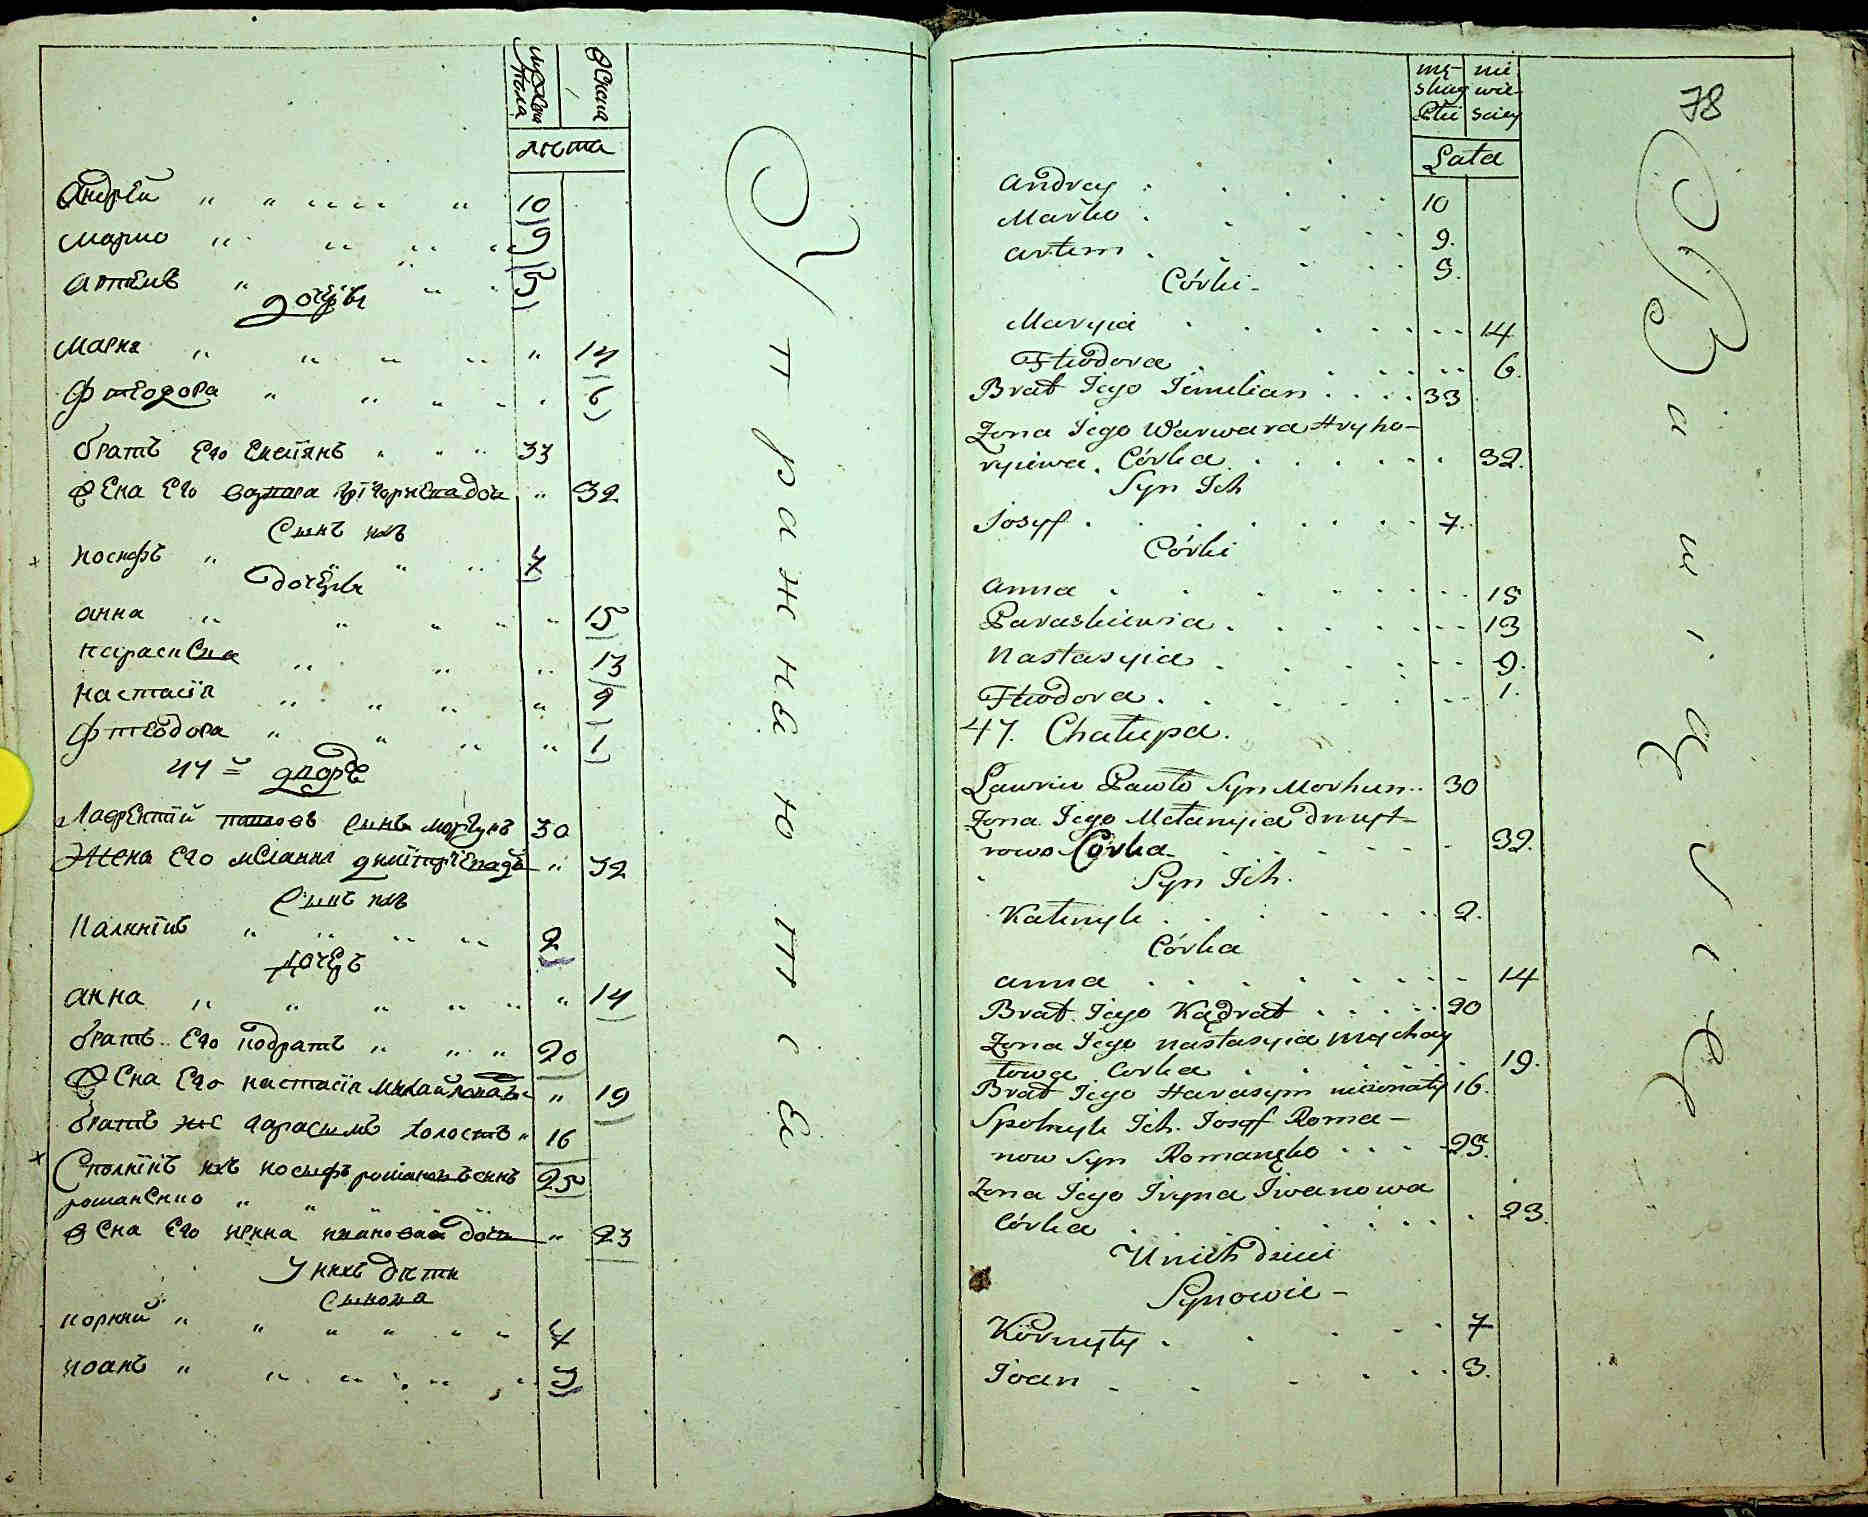 мужска пола
женска
лета
Андрѣй 10
Марко 9
Артемъ 5
дочери
Мария 14
Фтеодора 6
братъ Его Емелiянъ 33
жена Его варвара григориева дочь 32
Сынъ ихъ
Иосифъ 7
дочери
анна 15
параскева 13
настасiя 9
Фтеодора 1
47й дворъ
Лаврентiй павловъ сынъ моргунъ 30
Жена Его мелания дмитриева дочь 32
Сынъ ихъ
Калиникъ 2
дочерь
анна 14
братъ Его кодратъ 20
жена Его настасiя михайлова дочь 19
братъ же Гарасымъ холостъ 16
Сполникъ ихъ иосыфъ романовъ сынъ
романенко 25
жена Его ирина иванова дочь 23
У нихъ дети
Сынова
корнiй 7
иоанъ 3
Упражнюiтсе
78
mę-
skiey
Płci
nie
wie-
sciey
Lata
Andrey 10
Marko 9.
Artem 5.
Córki
Maryia 14
Fteodora 6.
Brat Jego Jemilian 33
Zona Jego Warwara Hryho-
ryiewa Córka 32.
Syn Ich
Josyf 7.
Córki
Anna 15
Paraskiewia 13
Nastasyia 9.
Fteodora 1.
47. Chałupa.
Lawrin Pawło Syn Morhun 30
Zona Jego Mełanyia Dmyt-
rowa Córka 32.
Syn Ich.
Kalinyk 2.
Córka
Anna 14
Brat Jego Kądrat 20
Zona Jego Nastasyia Mychay
łowa Corka 19.
Brat Jego Harasym nieżonaty 16.
Społnyk Ich. Josyf Roma-
now Syn Romanęko 25.
Zona Jego Iryna Iwanowa
Córka 23.
U nich dzieci
Synowie
Kornyły 7
Joan 3.